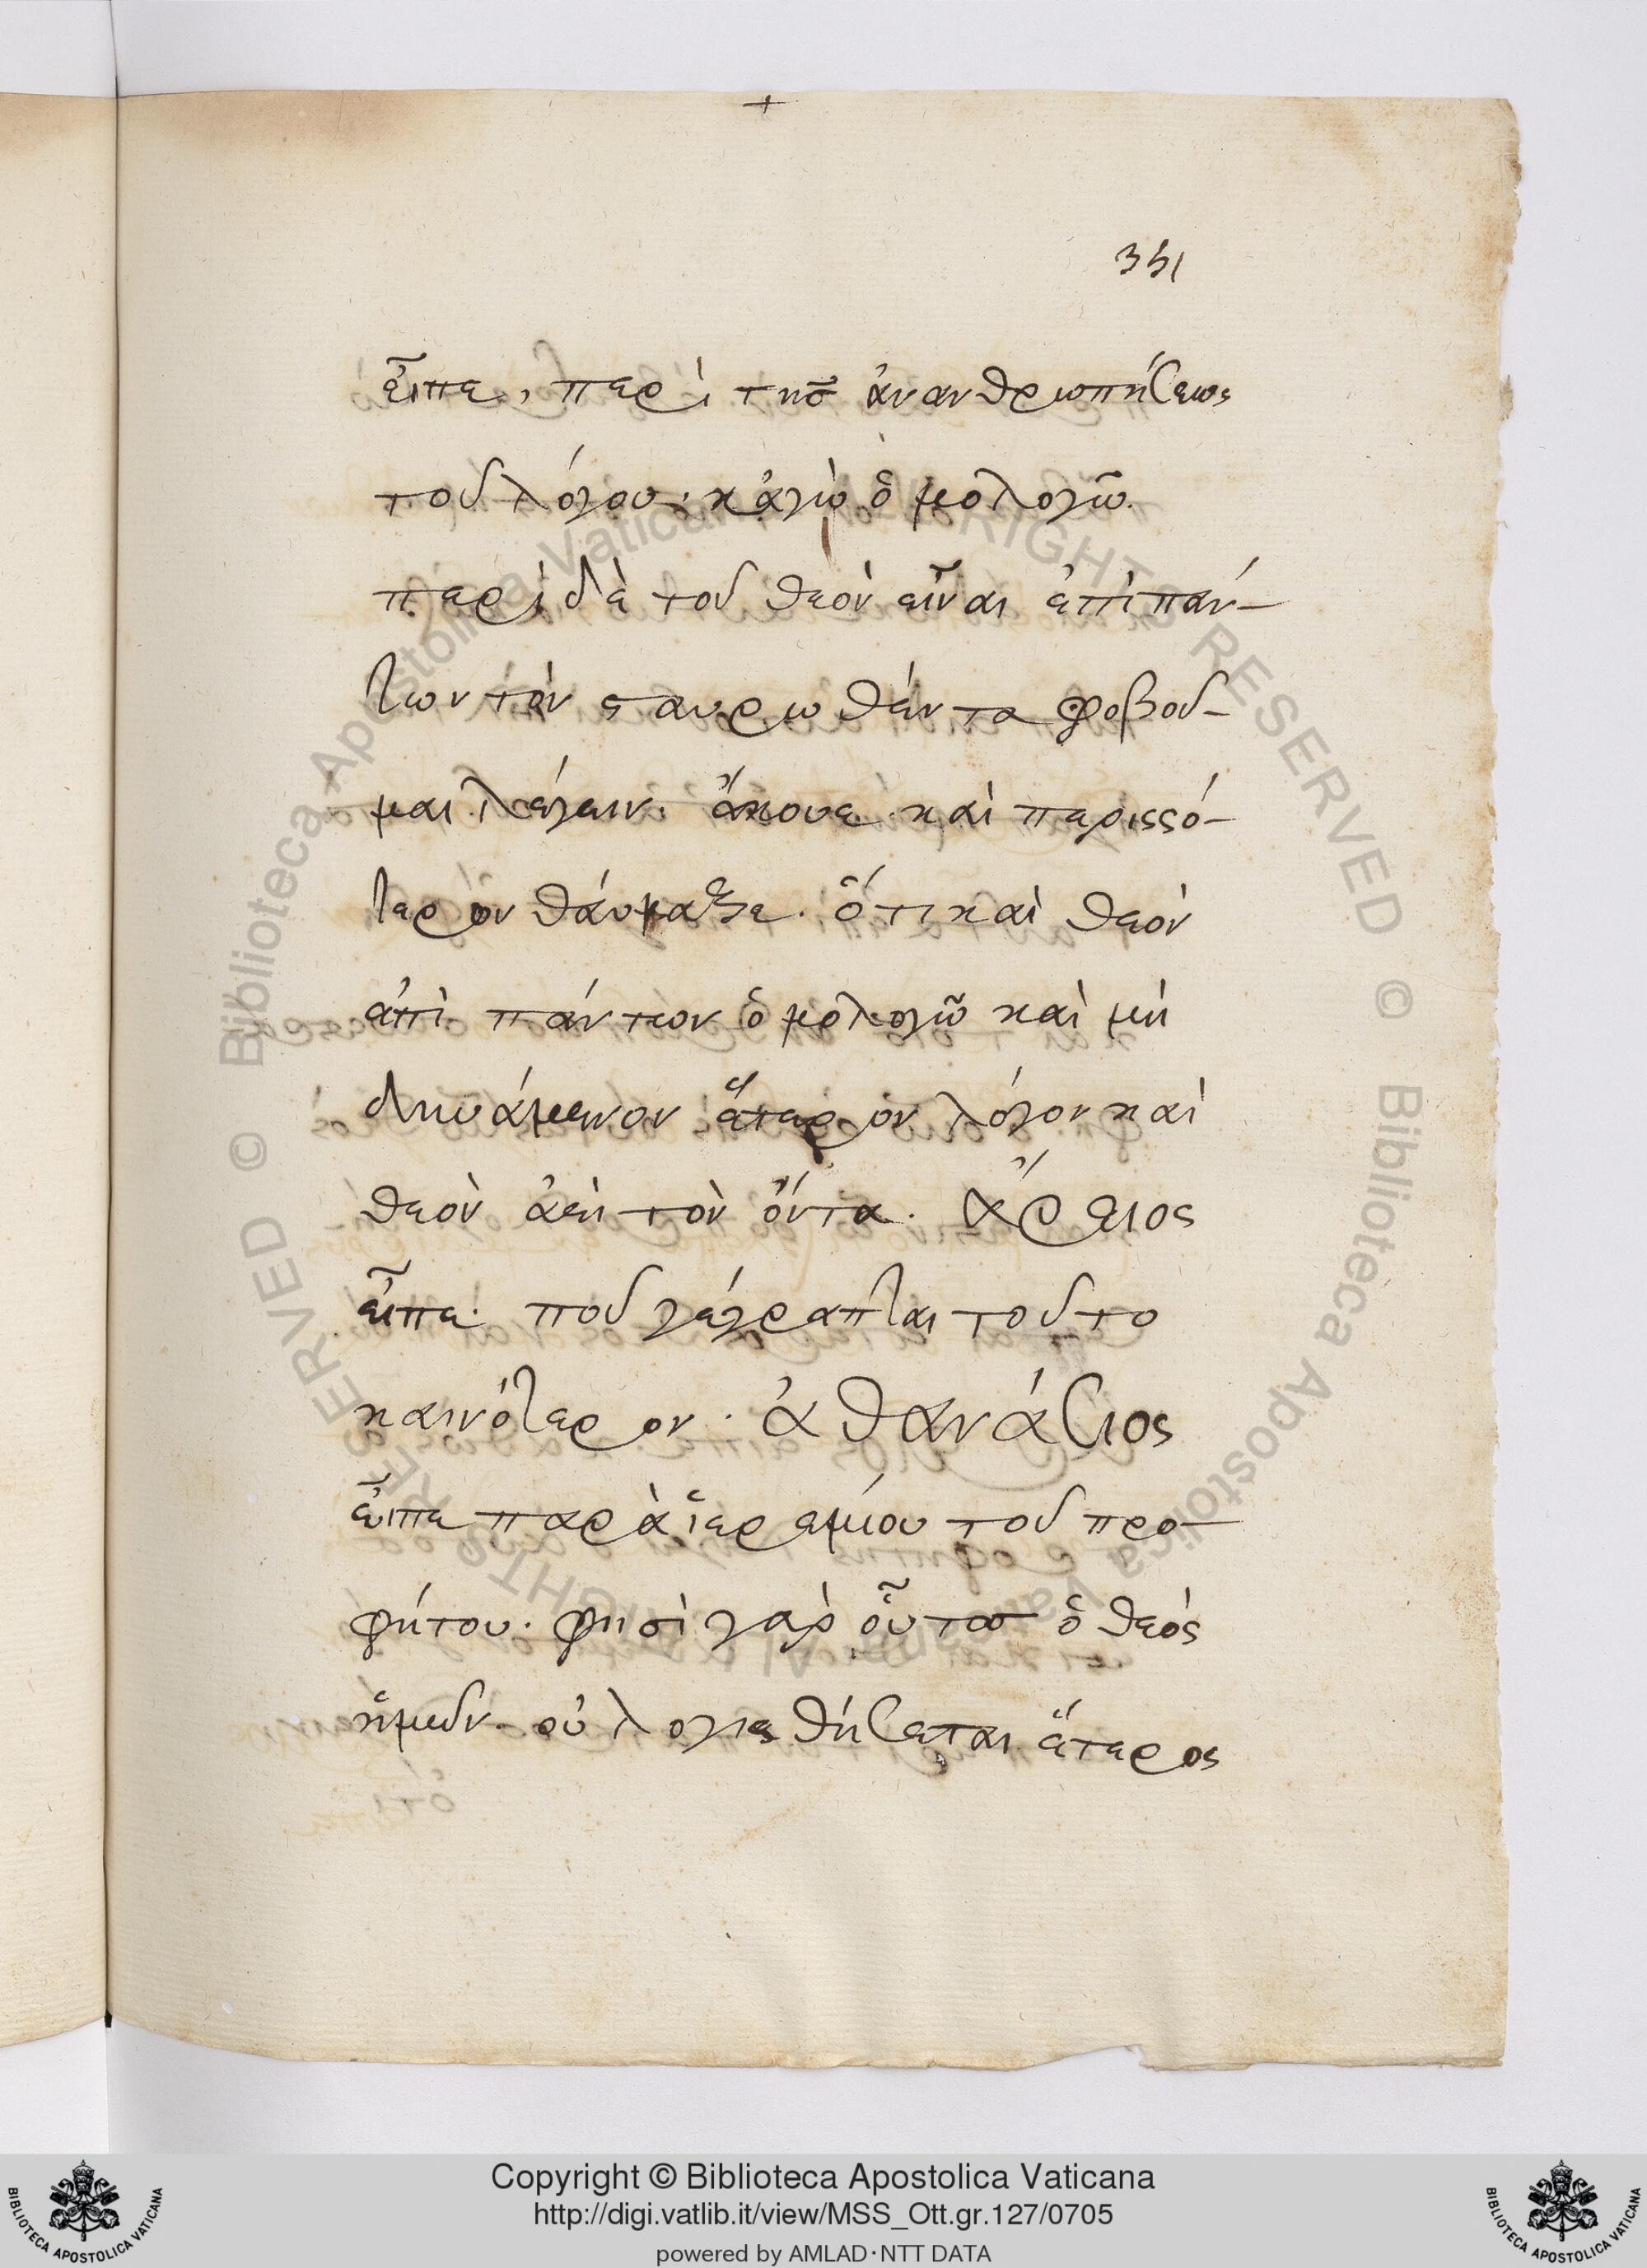 351
εἶπε, περὶ τῆς ἐνανθρωπήσεως
τοῦ λόγου, κἀγὼ ὁμολογῶ.
περὶ δὲ τοῦ θεὸν εἶναι ἐπὶ πάν-
των τὸν σταυρωθέντα φοβοῦ-
μαι λέγειν. ἄκουε καὶ περισσό-
τερον θαύμαξε. ὅτι καὶ θεὸν
ἐπὶ πάντων ὁμολογῶ καὶ μὴ
δυνάμενον ἕτερον λόγον καὶ
θεὸν ἀεὶ τὸν ὄντα. ἄρειος
εἶπε. ποῦ γέγραπται τοῦτο
καινότερον. ἀθανάσιος
εἶπε παρὰ ἱερεμίου τοῦ προ-
φήτου. φησὶ γὰρ οὗτος ὁ θεὸς
ἡμῶν. οὐ λογισθήσεται ἕτερος
Copyright © Biblioteca Apostolica Vaticana
http://digi.vatlib.it/view/MSS_Ott.gr.127/0705
powered by AMLAD·NTT DATA
BIBLIOTECA APOSTOLICA VATICANA
BIBLIOTECA APOSTOLICA VATICANA